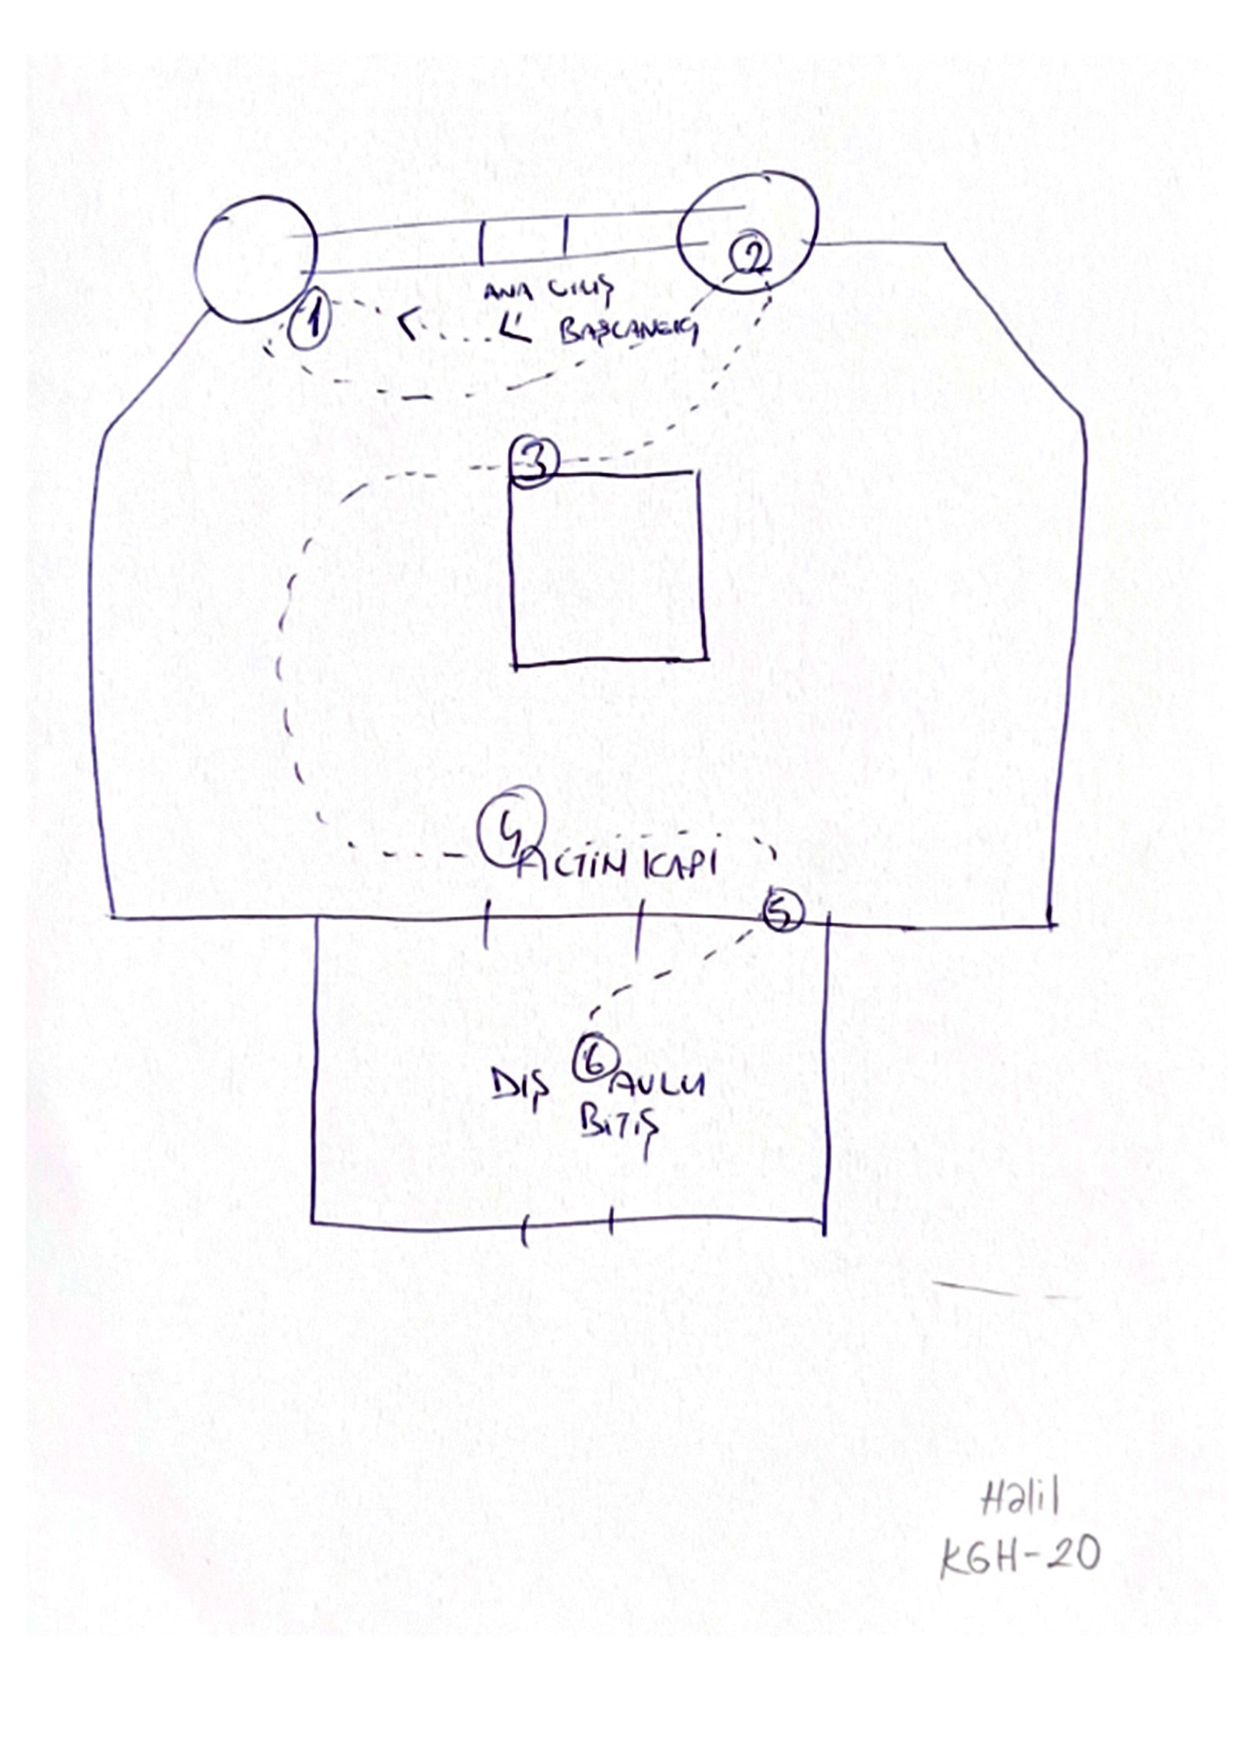 2
ANA GİRİŞ
1
BAŞLANGIÇ
3
4
ALTIN KAPI
5
6
DIŞ AVLU
BİTİŞ
Halil
KGH-20